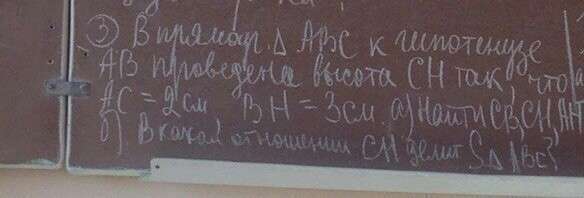 ③ В прямоуг. Δ ABC к гипотенузе
AB проведена высота CH так, что
AC = 2 см BH = 3 см. а) найти CB, CH, AH
б). В каком отношении CH делит S Δ ABC?